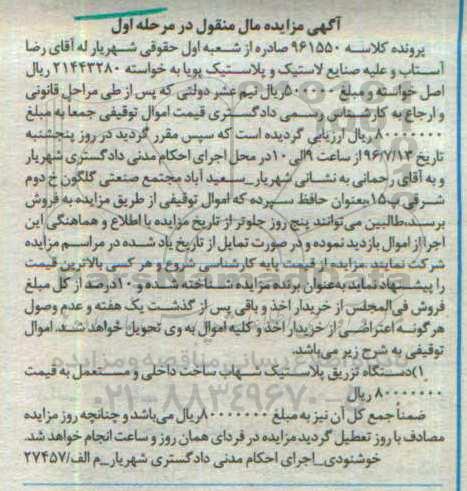 آگهی مزایده مال منقول در مرحله اول
پرونده کلاسه ۹۶۱۵۵۰ صادره از شعبه اول حقوقی شهریار له آقای رضا
آستاب و علیه صنایع لاستیک و پلاستیک پویا به خواسته ۲۱۴۴۳۲۸۰ ریال
اصل خواسته و مبلغ ۵۰۰۰۰۰ریال نیم عشر دولتی که پس از طی مراحل قانونی
و ارجاع به کارشناس رسمی دادگستری قیمت اموال توقیفی جمعا به مبلغ
۸۰۰۰۰۰۰۰ریال ارزیابی گردیده است که سپس مقرر گردید در روز پنجشنبه
تاریخ ۹۶/۷/۱۳از ساعت ۹الی ۱۰در محل اجرای احکام مدنی دادگستری شهریار
و به آقای رحمانی به نشانی شهریار_سعید آباد مجتمع صنعتی گلگون خ دوم
شرقی پ۱۵بعنوان حافظ سپرده که اموال توقیفی از طریق مزایده به فروش
برسد.طالبین می‌توانند پنج روز جلوتر از تاریخ مزایده با اطلاع و هماهنگی این
اجرا از اموال بازدید نموده و در صورت تمایل از تاریخ یاد شده در مراسم مزایده
شرکت نمایند .مزایده از قیمت پایه کارشناسی شروع و هر کسی بالاترین قیمت
را پیشنهاد نماید به‌عنوان برنده مزایده شناخته شده و ۱۰درصد از کل مبلغ
فروش فی‌المجلس از خریدار اخذ و باقی پس از گذشت یک هفته و عدم وصول
هرگونه اعتراضی از خریدار اخذ و کلیه اموال به وی تحویل خواهد شد. اموال
توقیفی به شرح زیر می‌باشد.
۱)دستگاه تزریق پلاستیک شهاب ساخت داخلی و مستعمل به قیمت
۸۰۰۰۰۰۰۰ ریال
ضمنا جمع کل آن نیز به مبلغ ۸۰۰۰۰۰۰۰ریال می‌باشد و چنانچه روز مزایده
مصادف با روز تعطیل گردید مزایده در فردای همان روز و ساعت انجام خواهد شد.
خوشنودی_اجرای احکام مدنی دادگستری شهریار_م الف/۲۷۴۵۷
۰۲۱-۸۸۳۴۹۶۷۰